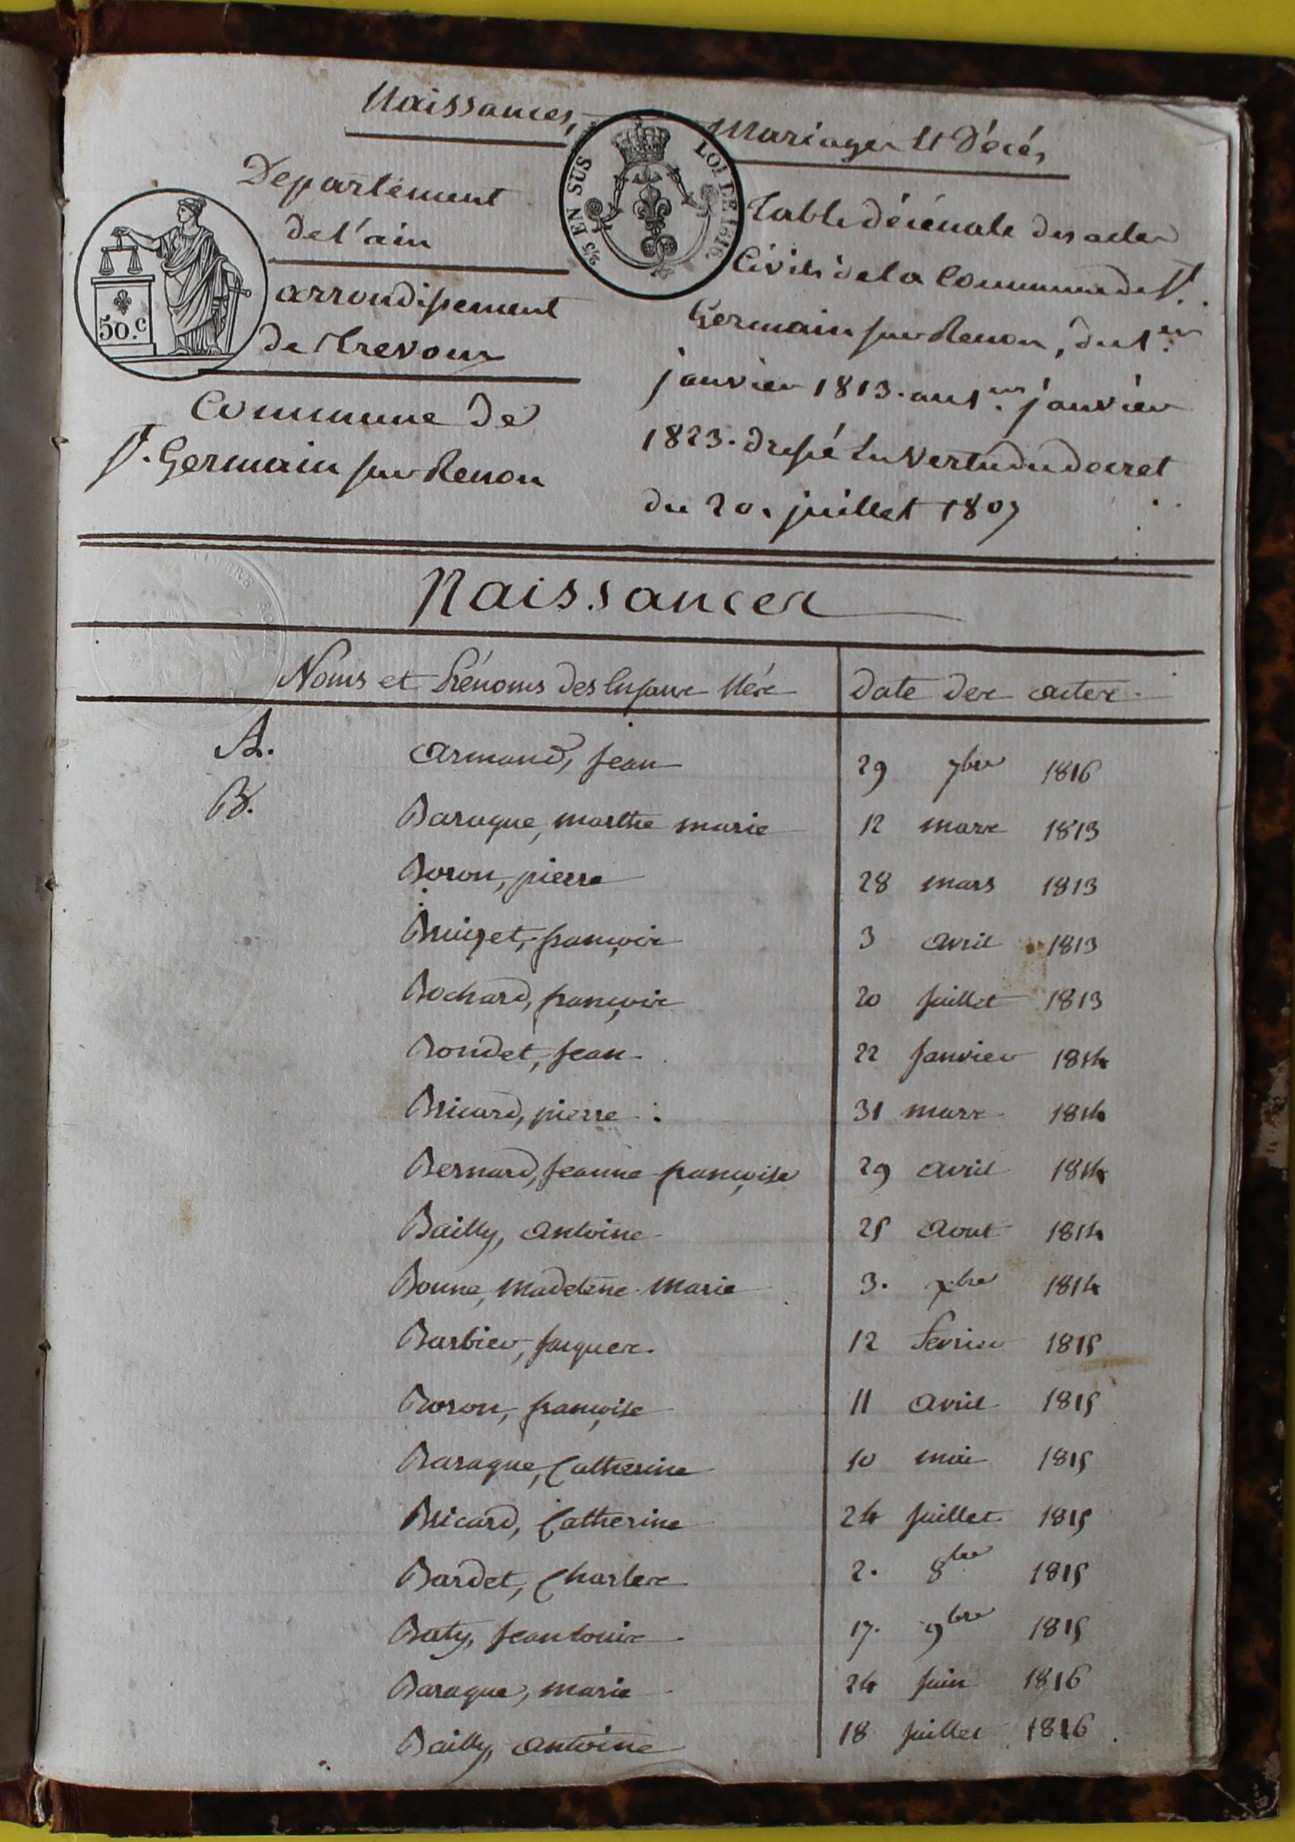 Naissances, Mariages Et Décés
Departement
de l'ain
arrondissement
de Trevoux
Commune de
St. Germain sur Renon
50.c
2/5 EN SUS
LOI DE 1816.
Table décénale des actes
Civils de la Commune de St.
Germain sur Renon, du 1.er
janvier 1813. au 1.er janvier
1823. dressé En Vertu du decret
du 20. juillet 1807
Naissances
Noms et Prénoms des Enfans Nés
Date des actes
A. armand, jean 29 7bre 1816
B. Baraque, marthe marie 12 mars 1813
Boron, pierre 28 mars 1813
Buiget, françois 3 avril 1813
Bochard, françois 20 juillet 1813
Bondet, jean 22 janvier 1814
Bricard, pierre 31 mars 1814
Bernard, jeanne françoise 29 avril 1814
Bailly, antoine 25 aout 1814
Bonne, madelene marie 3. xbre 1814
Barbier, jacques 12 fevrier 1815
Boron, françoise 11 avril 1815
Baraque, Catherine 10 mai 1815
Bricard, Catherine 24 juillet 1815
Bardet, Charles 2. 8bre 1815
Baty, jean louis 17. 9bre 1815
Baraque, marie 24 juin 1816
Bailly, antoine 18 juillet 1816